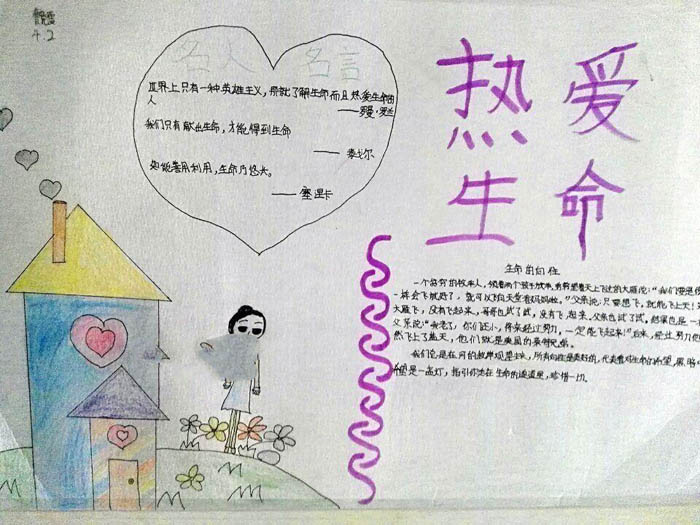 4.2
名人 名言
世界上只有一种英雄主义，那就了解生命而且热爱生命的
人
——罗曼·罗兰
我们只有献出生命，才能得到生命
——泰戈尔
如能善用利用，生命乃悠长。
——塞涅卡
热爱
生命
生命的向往
一个贫穷的牧羊人，领着两个孩子放羊，弟弟望着天上飞过的大雁说："我们要是像
一样会飞就好了，就可以到天堂看妈妈啦。"父亲说：只要想飞，就能飞上天！
大雁飞，没有飞起来，哥哥也试了试，没有飞起来，父亲也试了试，结果也是一
父亲说："我老了，你们还小，将来经过努力，一定能飞起来！"后来，经过努力他
然飞上了蓝天，他们就是美国的莱特兄弟。
我们总是在河的彼岸观望，所有向往是美好的，代表着对生命的希望，黑暗
希望是一盏灯，指引你走在生命的道道里，珍惜一切。